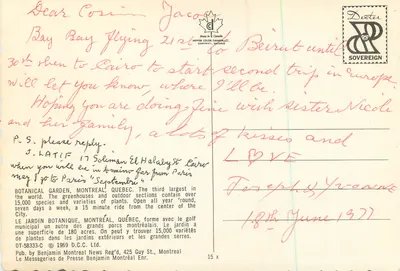 Dear Cosin Jacos
Bay Bay flying 21st to Beirut until
30th then to Cairo to start second trip in Europe
will let you know, where I'll be.
Hoping you are doing fine wish sister Nicole
and her family, a lots of kisses and
LOVE
Joseph & Yvonne
18th June 1977
P.S. please reply.
J. LATIF 17 Soliman El Halaby St Cairo
when you will be in Amino far from Paris
may I go to Paris "Septembre"
Dexter
SOVEREIGN
BOTANICAL GARDEN, MONTREAL, QUEBEC. The third largest in
the world. The greenhouses and outdoor sections contain over
15,000 species and varieties of plants. Open all year 'round,
seven days a week, a 15 minute ride from the center of the
city.
LE JARDIN BOTANIQUE, MONTRÉAL, QUÉBEC, forme avec le golf
municipal un autre des grands parcs montréalais. Le jardin a
une superficie de 180 acres. On peut y trouver 15,000 variétés
de plantes dans les jardins extérieurs et les grandes serres.
OT-58333-C © 1969 D.C.C. Ltd.
Pub. by Benjamin Montreal News Reg'd, 425 Guy St., Montreal
Les Messageries de Presse Benjamin Montréal Enr.
15 x